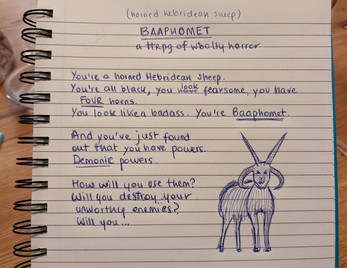 (horned hebridean sheep)
BAAPHOMET
a TTRPG of woolly horror
You're a horned Hebridean sheep.
You're all black, you look fearsome, you have
FOUR horns.
You look like a badass. You're Baaphomet.
And you've just found
out that you have powers.
Demonic powers.
How will you use them?
Will you destroy your
unworthy enemies?
Will you...